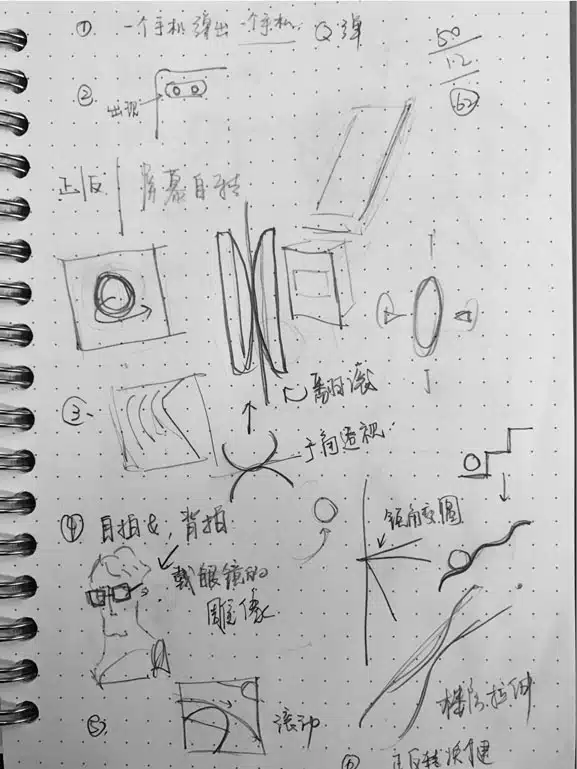 ① 一个手机弹出一个手机. Q弹
50
12
62
②
出现
正/反 屏幕自转
③
翻滚
于间透视.
④ 自拍&背拍
钝角变圆
戴眼镜的
雕像
⑤
滚动
横向拉伸
⑥ 正反转换